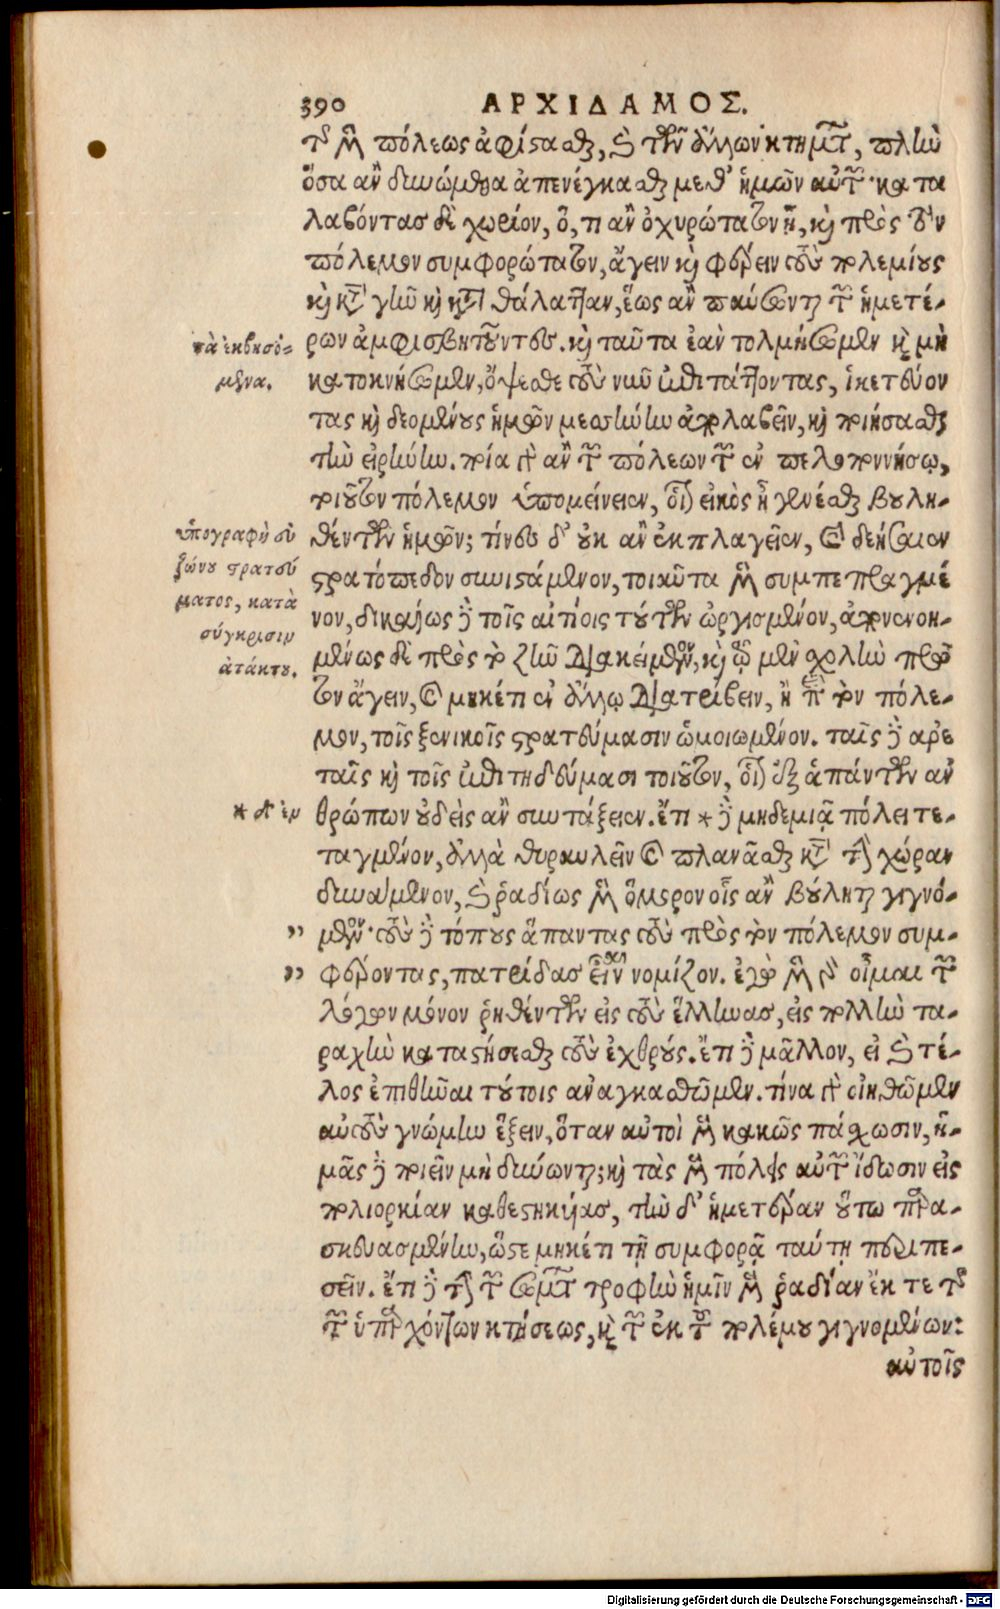 390 ΑΡΧΙΔΑΜΟΣ.
τῆς μὲν πόλεως ἀφίστασθαι, καὶ τῶν ἄλλων κτημάτων, πλὴν
ὅσα ἂν δυνώμεθα ἀπενέγκασθαι μεθ' ἡμῶν αὐτῶν· κατα
λαβόντας δὲ χωρίον, ὅ, τι ἂν ὀχυρώτατον ᾖ, καὶ πρὸς τὸν
πόλεμον συμφορώτατον, ἄγειν καὶ φέρειν τοὺς πολεμίους
καὶ κατὰ γῆν καὶ κατὰ θάλατταν, ἕως ἂν παύσωνται τῶν ἡμετέ-
ρων ἀμφισβητοῦντες. καὶ ταῦτα ἐὰν τολμήσωμεν καὶ μὴ
κατοκνήσωμεν, ὄψεσθε τοὺς νῦν ἐπιτάττοντας, ἱκετεύον
τας καὶ δεομένους ἡμῶν μεσσήνην ἀπολαβεῖν, καὶ ποιήσασθαι
τὴν εἰρήνην. ποία γὰρ ἂν τῶν πόλεων τῶν ἐν πελοποννήσῳ,
τοιοῦτον πόλεμον ὑπομείνειεν, οἷον εἰκὸς ἦν γενέσθαι βουλη-
θέντων ἡμῶν; τίνες δ' οὐκ ἂν ἐκπλαγεῖεν, καὶ δείσειαν
στρατόπεδον συνιστάμενον, τοιαῦτα μὲν συμπεπραγμέ
νον, δικαίως δὲ τοῖς αἰτίοις τούτων ὠργισμένον, ἀπονενοη-
μένως δὲ πρὸς τὸ ζῆν διακείμενον, καὶ τῷ μὲν σχολὴν
ἄγειν, καὶ μηκέτι ἐν ἄλλῳ διατρίβειν, ἢ περὶ τὸν πόλε-
μον, τοῖς ξενικοῖς στρατεύμασιν ὡμοιωμένον. ταῖς δὲ ἀρε
ταῖς καὶ τοῖς ἐπιτηδεύμασι τοιοῦτον, οἷον ἐξ ἁπάντων ἀν
θρώπων οὐδεὶς ἂν συντάξειεν. ἔτι * δὲ μηδεμιᾷ πόλει τε-
ταγμένον, ἀλλὰ θυραυλεῖν καὶ πλανᾶσθαι κατὰ τὴν χώραν
δυνάμενον, καὶ ῥαδίως μὲν ὅμορον οἷς ἂν βούληται γιγνό-
μενον· τοὺς δὲ τόπους ἅπαντας τοὺς πρὸς τὸν πόλεμον συμ-
φέροντας, πατρίδας εἶναι νομίζον. ἐγὼ μὲν γὰρ οἶμαι τῶν
λόγων μόνον ῥηθέντων εἰς τοὺς ἕλληνας, εἰς πολλὴν τα-
ραχὴν καταστήσεσθαι τοὺς ἐχθρούς. ἔτι δὲ μᾶλλον, εἰ καὶ τέ-
λος ἐπιθεῖναι τούτοις ἀναγκασθῶμεν. τίνα γὰρ οἰηθῶμεν
αὐτοὺς γνώμην ἕξειν, ὅταν αὐτοὶ μὲν κακῶς πάσχωσιν, ἡ-
μᾶς δὲ ποιεῖν μὴ δύνωνται; καὶ τὰς μὲν πόλεις αὐτῶν ἴδωσιν εἰς
πολιορκίαν καθεστηκυίας, τὴν δ' ἡμετέραν οὕτω παρε-
σκευασμένην, ὥστε μηκέτι τῇ συμφορᾷ ταύτῃ περιπε-
σεῖν. ἔτι δὲ τὴν τῶν σωμάτων τροφὴν ἡμῖν μὲν ῥαδίαν ἔκ τε τῆς
τῶν ὑπαρχόντων κτήσεως, καὶ τῶν ἐκ τοῦ πολέμου γιγνομένων:
αὐτοῖς
τὰ ἐκβησό-
μενα.
ὑπογραφὴ συ
ζώνου στρατεύ
ματος, κατὰ
σύγκρισιν
ἀτάκτου.
* δὲ ἐν
”
”
Digitalisierung gefördert durch die Deutsche Forschungsgemeinschaft - DFG